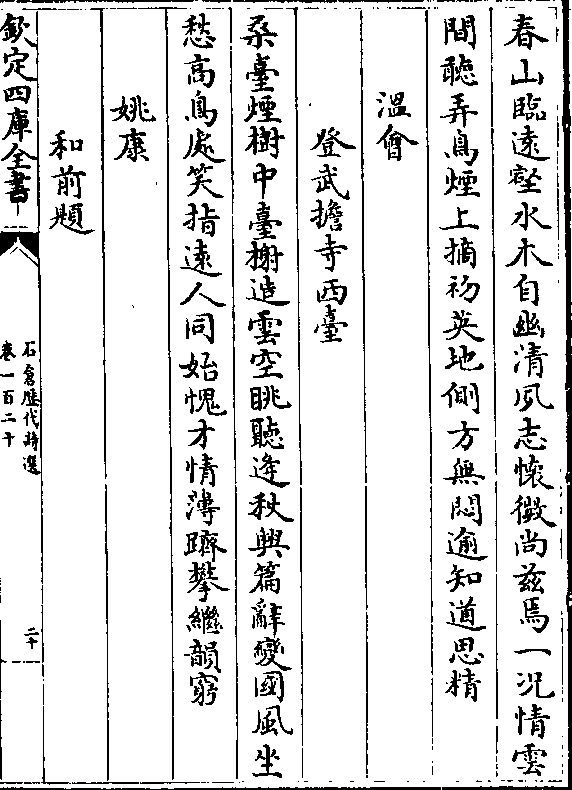 春山臨遠壑水木自幽清夙志懷微尚兹焉一况情雲
間聽弄鳥煙上摘初英地側方無悶逾知道思精
溫會
登武擔寺西臺
桑臺煙樹中臺榭造雲空眺聽逢秋興篇辭變國風坐
愁高鳥處笑指遠人同始愧才情薄躋攀繼韻窮
姚康
和前題
欽定四庫全書
石倉歷代詩選
卷一百二十
二十